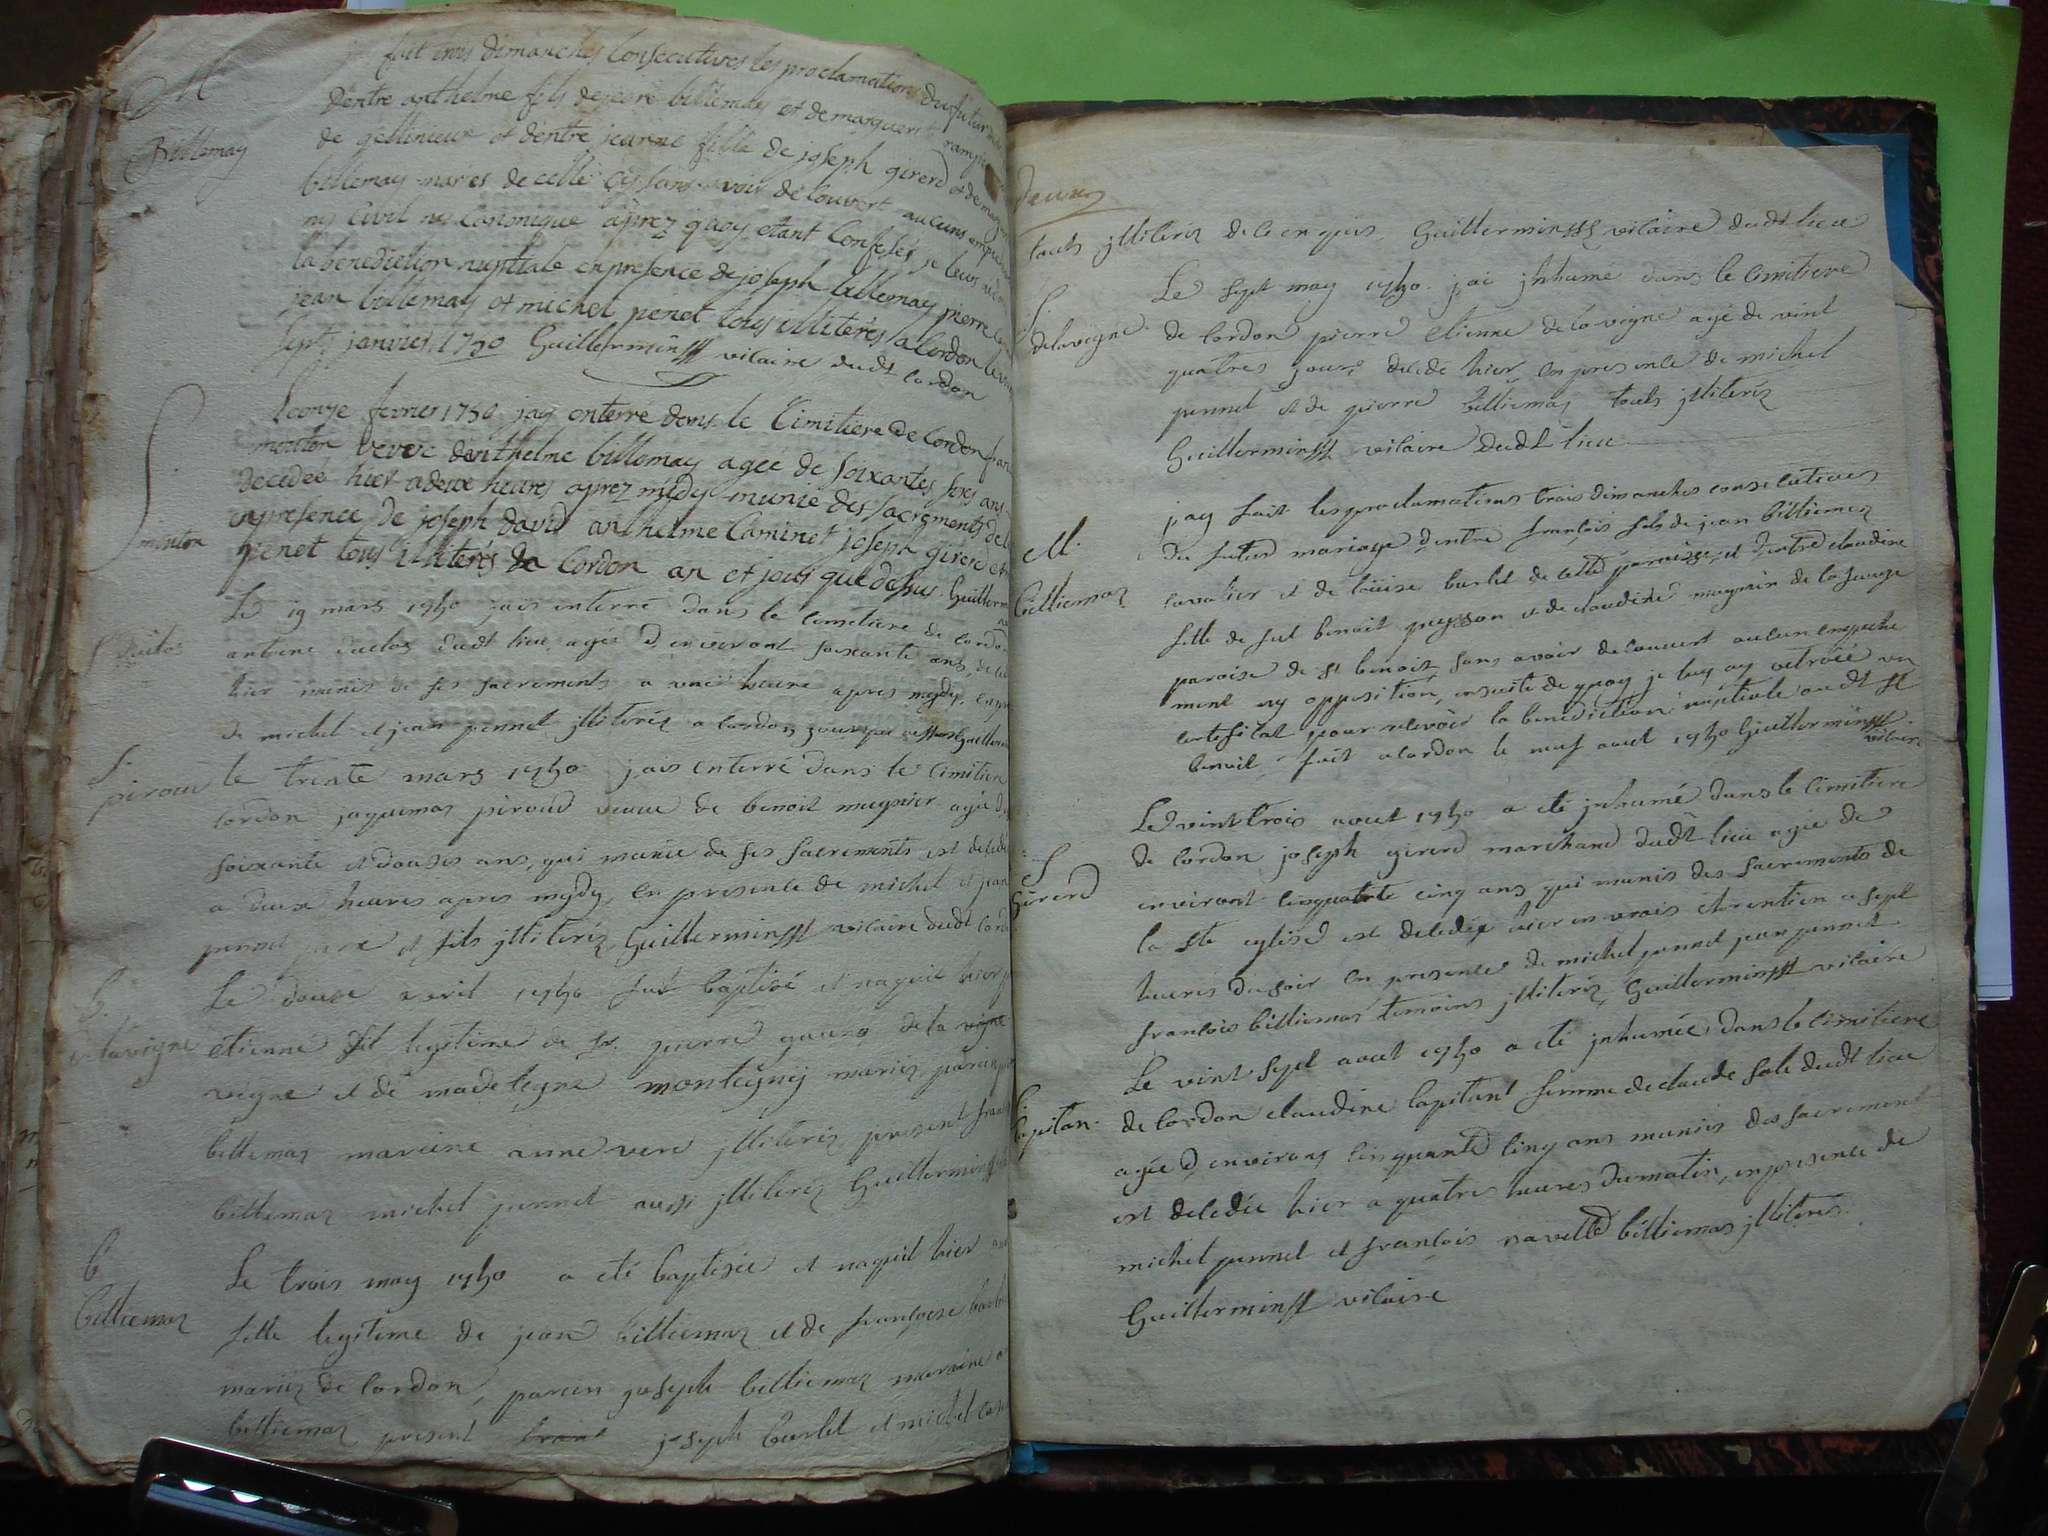 M
Billemaz
fait trois dimanches consecutives les proclamations du futur
dentre anthelme fils de jean billemaz et de marguerite
de gelinieux et dentre jeanne fille de joseph girerd et de
billemaz maries de celle cy sans avoir decouvert aucuns
ny civil ny canonique aprez quoy etant confessés je leurs
la benediction nuptiale en presence de joseph billemaz pierre
jean billemaz et michel penet tous illiterés a Cordon le
sept janvier 1750 Guillermin vicaire dudt cordon
S
monton
leonze fevrier 1750 jay enterré dans le Cimitiere de Cordon
monton veuve danthelme billemaz agée de soixantes six ans
decedée hier a deux heures aprez midy munie des sacrements de
en presence de joseph david anthelme Caminet joseph girerd et
penet tous illiterés a Cordon an et jour que dessus Guillermin
S Duclos
Le 19 mars 1750 jais enterré dans le cemetiere de cordon
antoine duclos dudt lieu agée d'environt soixante ans, decedé
hier munis de ses sacrements a une heure apres mydy, en
de michel et jean pennet jlliteréz a cordon
S
piroud
le trente mars 1750 jais enterré dans le cimitiere
cordon jaquemaz piroud veuve de benoit mugnier agée de
soixante et douses ans, qui munie de ses sacrements est decedé
a deux heures apres mydy, en presence de michel et jean
pennet pere et fils jlliteréz Guillermin vicaire dudt cordon
b.
delavigne
Le douse avril 1750 fut baptisé et naquit hier
etienne fil legitime de sr. pierre de la vigne
vigne et de madelegne montegny mariez parein
billemaz mareine anne vere jlliteréz present
billemaz michel pennet aussi jlliteréz Guillermin
b
billiemaz
Le trois may 1750 a eté baptisée et naquit hier
fille legitime de jean billiemaz et de francoise
mariez de cordon, parein joseph billiemaz maraine
billiemaz present joseph burlet et michel
deuxe
touts jlliteréz de ce enquis Guillermin vicaire dudt lieu
S.
delavigne
Le sept may 1750 jai jnhumé dans le cimitiere
de cordon pierre etienne delavigne agé de vint
quatres jours decedé hier en presence de michel
pennet et de pierre billiemaz touts jlliteréz
Guillermin vicaire dudt lieu
M.
billiemaz
jay fait les proclamations trois dimanches consecutives
du futur mariage dentre françois fils de jean billiemaz
cavalier et de loüise burlet de cette paroisse, et dentre claudine
fille de feu benoit peysson et de claudine magnin de la
paroise de st benoit sans avoir decouvert aucun empeche
ment ny opposition, ensuite de quoy je luy ay octroiée un
certificat pour recevoir la benediction nuptiale audt st
benoit, fait a cordon le neuf aout 1750 Guillermin
vicaire
S
Girerd
Le vint trois aout 1750 a eté jnhumé dans le cimitiere
de cordon joseph girerd marchand dudt lieu agée de
environt cinquante cinq ans qui munis des sacrements de
la ste eglise est decedée hier en vrais chrentien a sept
heures du soir en presence de michel pennet jean pennet
francois billiemaz temoins jlliteréz Guillermin vicaire
S
Capitan
Le vint sept aout 1750 a eté jnhumée dans le cimitiere
de cordon claudine Capitant femme de claude sale dudt lieu
agée d'environs cinquante cinq ans munies des sacrement
est decedée hier a quatres heures du matin, en presence de
michel pennet et francois navette billiemaz jlliterés
Guillermin vicaire